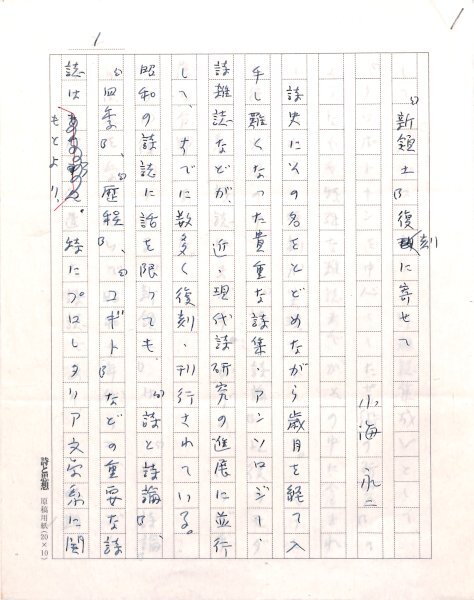 1
1
『新領土』復刻に寄せて
小海永二
詩史にその名をとどめながら歳月を経て入
手し難くなった貴重な詩集・アンソロジー・
詩雑誌などが、近・現代詩研究の進展に並行
して、すでに数多く復刻・刊行されている。
昭和の詩誌に話を限っても、『詩と詩論』、
『四季』、『歴程』、『コギト』などの重要な詩
誌はもとより、特にプロレタリア文学系に関
詩と思想 原稿用紙(20×10)